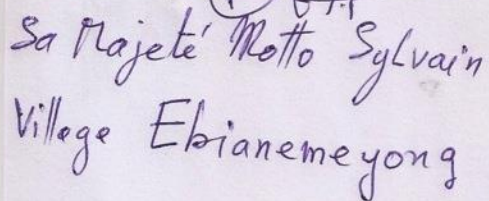 Sa Majeté Motto Sylvain
Village Ebianemeyong